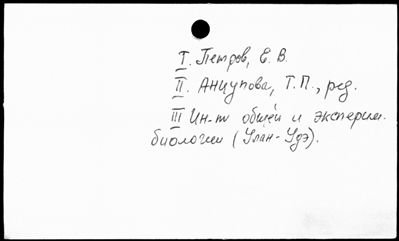 I. Петров, Е. В.
II. Анцупова, Т. П., ред.
III Ин-т общей и эксперим.
биологии (Улан-Удэ).